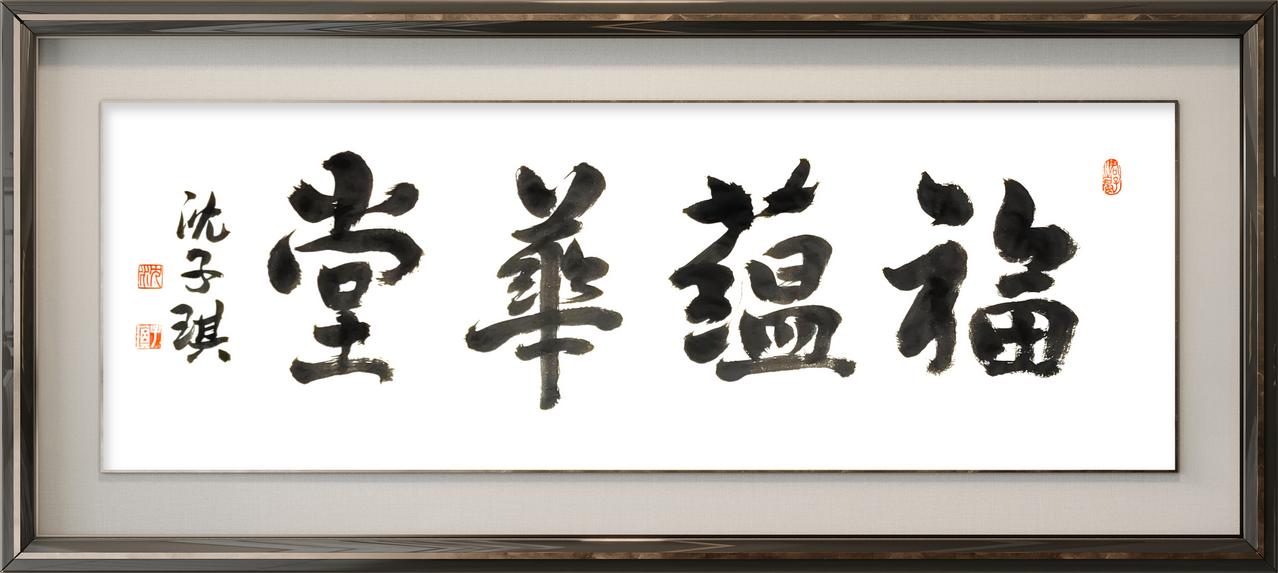 福蘊華堂
沈子琪